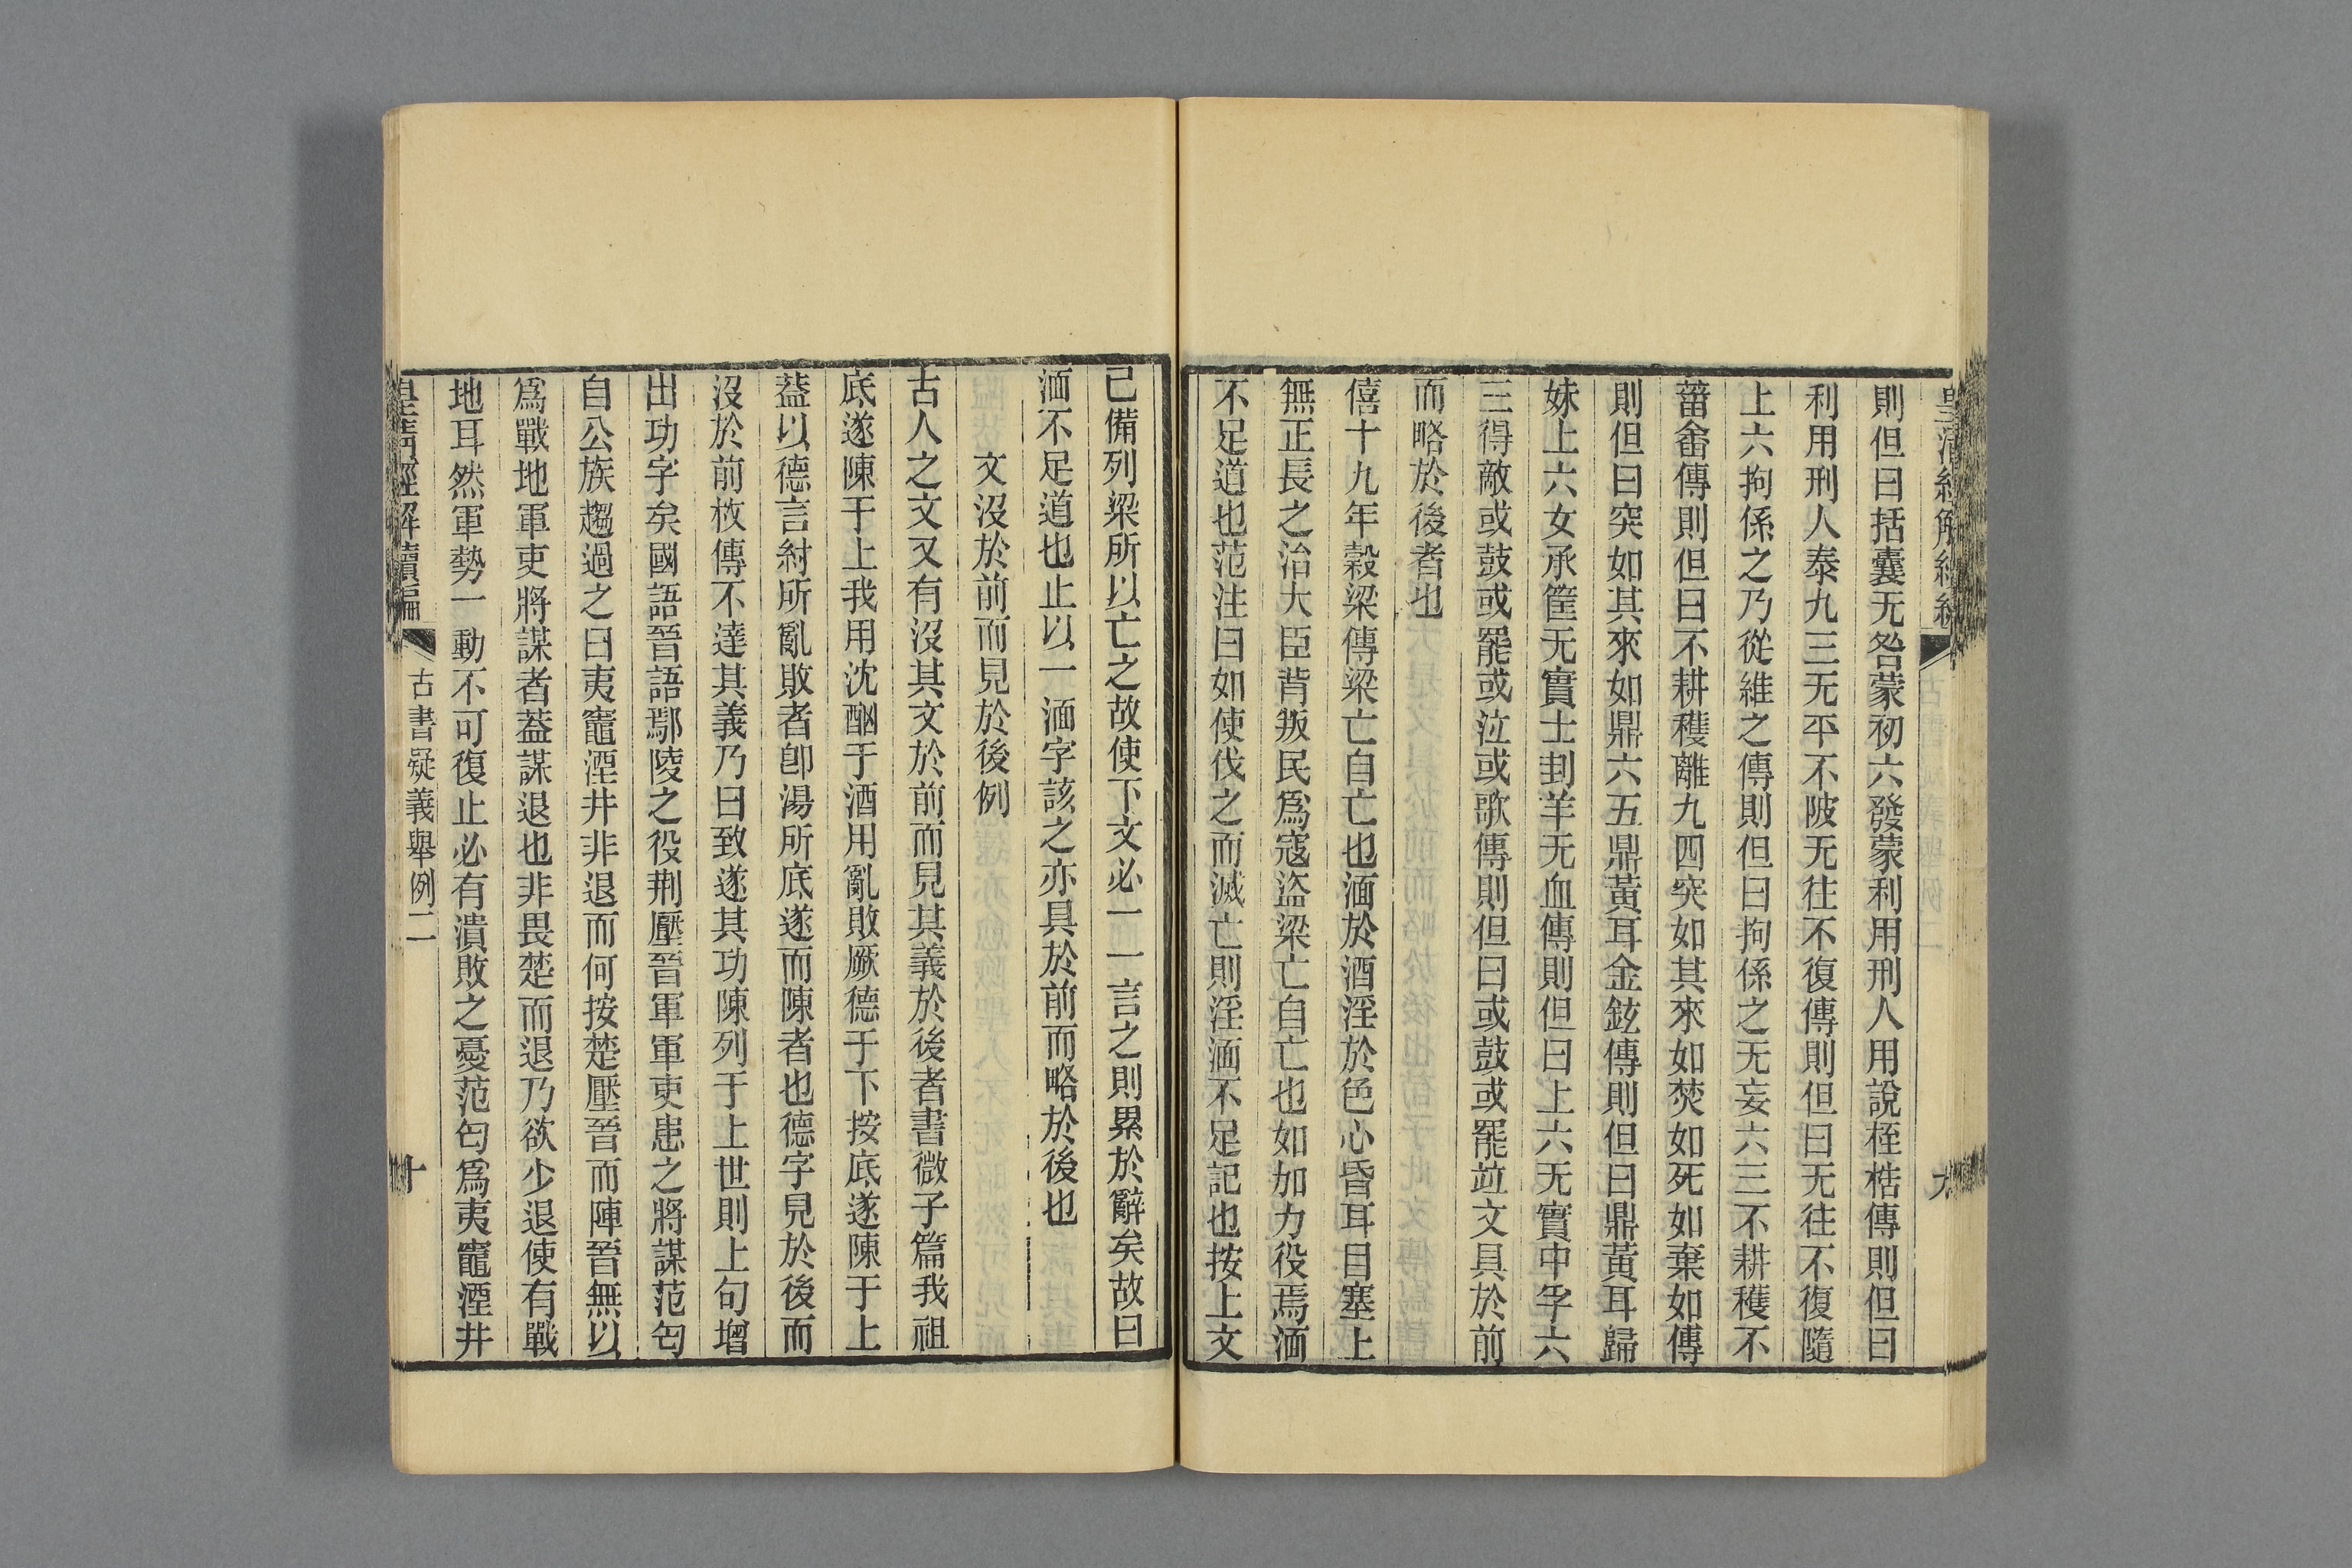 則但曰括囊无咎蒙初六發蒙利用刑人用說桎梏傳則但曰
利用刑人泰九三无平不陂无往不復傳則但曰无往不復隨
上六拘係之乃從維之傳則但曰拘係之无妄六三不耕穫不
菑畬傳則但曰不耕穫離九四突如其來如焚如死如棄如傳
則但曰突如其來如鼎六五鼎黃耳金鉉傳則但曰鼎黃耳歸
妹上六女承筐无實士刲羊无血傳則但曰上六无實中孚六
三得敵或鼓或罷或泣或歌傳則但曰或鼓或罷竝文具於前
而略於後者也
僖十九年穀梁傳梁亡自亡也湎於酒淫於色心昏耳目塞上
無正長之治大臣背叛民爲寇盜梁亡自亡也如加力役焉湎
不足道也范注曰如使伐之而滅亡則淫湎不足記也按上文
已備列梁所以亡之故使下文必一一言之則累於辭矣故曰
湎不足道也止以一湎字該之亦具於前而略於後也
文沒於前而見於後例
古人之文又有沒其文於前而見其義於後者書微子篇我祖
底遂陳于上我用沈酗于酒用亂敗厥德于下按底遂陳于上
葢以德言紂所亂敗者卽湯所底遂而陳者也德字見於後而
沒於前枚傳不達其義乃曰致遂其功陳列于上世則上句增
出功字矣國語晉語鄢陵之役荆壓晉軍軍吏患之將謀范匄
自公族趨過之曰夷竈湮井非退而何按楚壓晉而陣晉無以
爲戰地軍吏將謀者葢謀退也非畏楚而退乃欲少退使有戰
地耳然軍勢一動不可復止必有潰敗之憂范匄爲夷竈湮井
皇淸經解續編
古書疑義舉例二
十